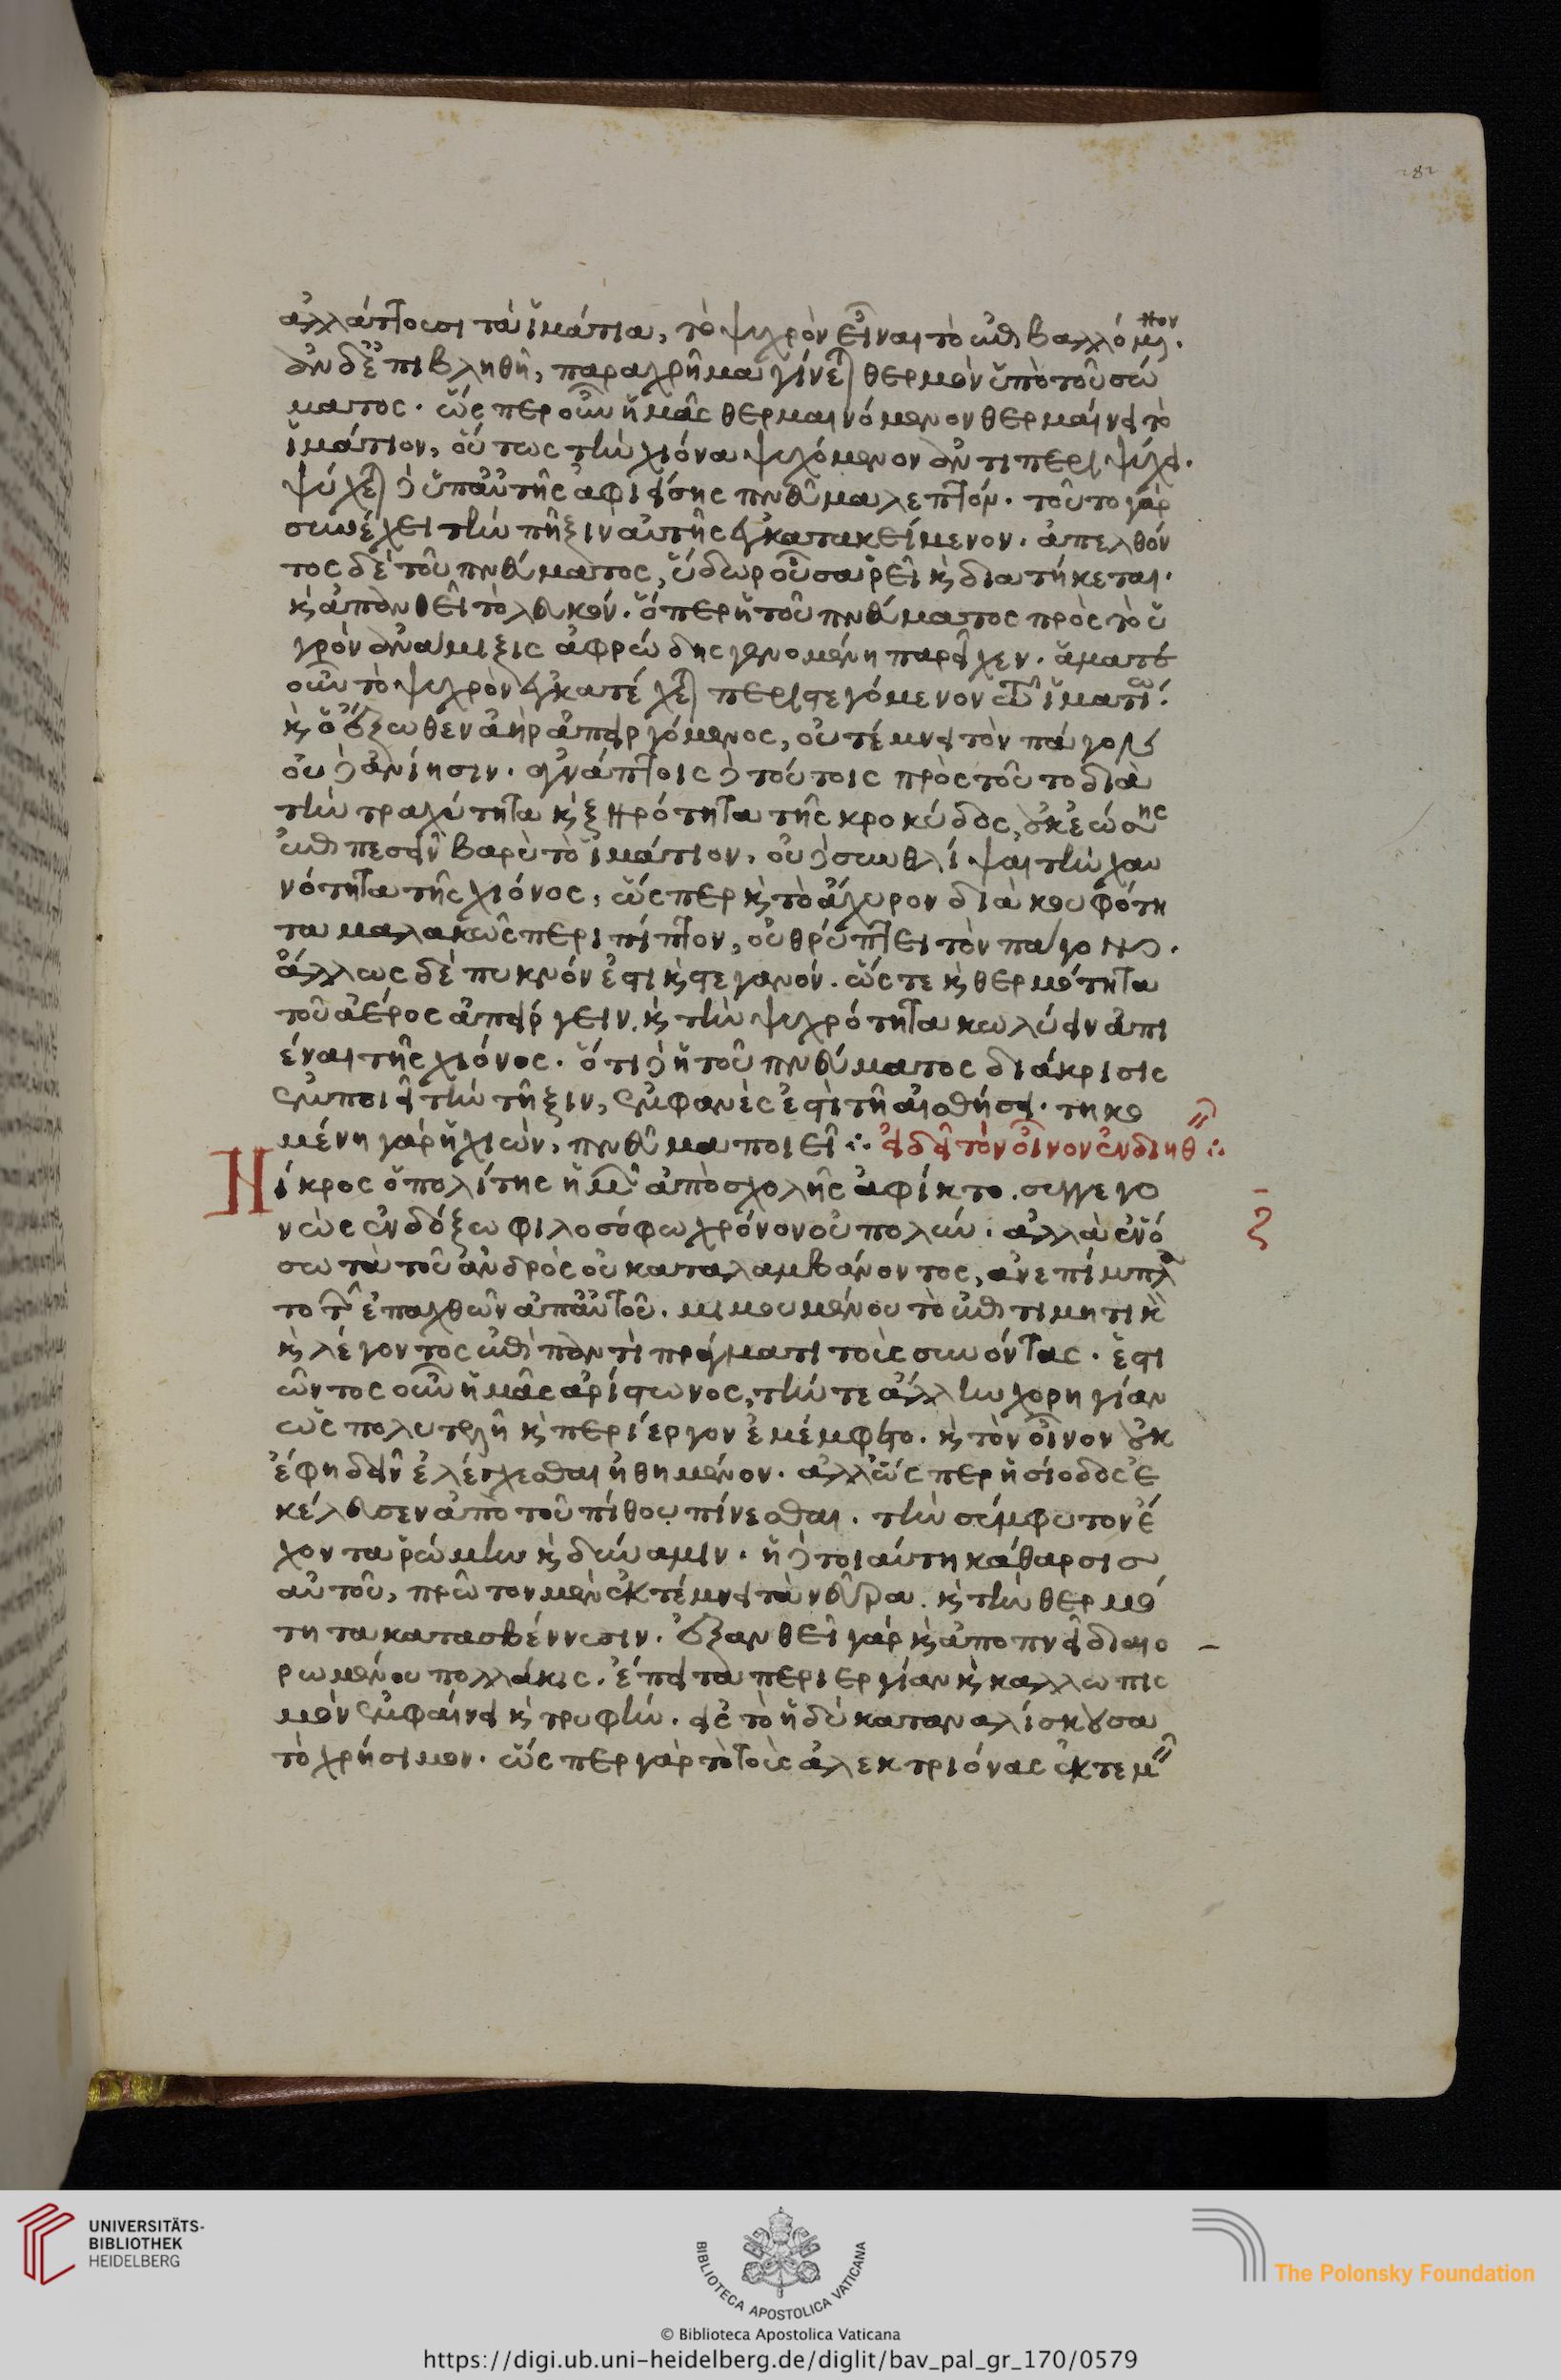 282
ἀλλάττουσι τὰ ἱμάτια, τὸ ψυχρὸν εἶναι τὸ ἐπιβαλλόμενον.
ἂν δ' ἐπιβληθῆ, παραχρῆμα γίνεται θερμὸν ὑπὸ τοῦ σώ
ματος. ὥσπερ οὖν ἡμᾶς θερμαινόμενον θερμαίνει τὸ
ἱμάτιον, οὕτως τὴν χιόνα ψυχόμενον ἀντιπεριψύχει.
ψύχεται δ' ὑπ' αὐτῆς ἀφιείσης πνεῦμα λεπτόν. τοῦτο γὰρ
συνέχει τὴν πῆξιν αὐτῆς ἐγκατακείμενον. ἀπελθόν
τος δὲ τοῦ πνεύματος, ὕδωρ οὖσα ῥεῖ καὶ διατήκεται.
καὶ ἀπανθεῖ τὸ λευκόν. ὅπερ ἡ τοῦ πνεύματος πρὸς τὸ ὑ
γρὸν ἀνάμιξις ἀφρώδης γενομένη παρεῖχεν. ἅμα τε
οὖν τὸ ψυχρὸν ἐγκατέχεται περιστεγόμενον τῶ ἱματίω.
καὶ ὁ ἔξωθεν ἀὴρ ἀπειργόμενος, οὐ τέμνει τὸν πάγον
οὐδ' ἀνίησιν. ἀγνάπτοις δὲ τούτοις πρὸς τοῦτο διὰ
τὴν τραχύτητα καὶ ξηρότητα τῆς κροκύδος, οὐκ ἐώσης
ἐπιπεσεῖν βαρὺ τὸ ἱμάτιον, οὐδὲ συνθλίψαι τὴν χαυ
νότητα τῆς χιόνος, ὥσπερ καὶ τὸ ἄχυρον διὰ κουφότη
τα μαλακῶς περιπίπτον, οὐ θρύπτει τὸν πάγον.
ἄλλως δὲ πυκνόν ἐστι καὶ στεγανόν. ὥστε καὶ θερμότητα
τοῦ ἀέρος ἀπείργειν. καὶ τὴν ψυχρότητα κωλύειν ἀπι
έναι τῆς χιόνος. ὅτι δ' ἡ τοῦ πνεύματος διάκρισις
ἐμποιεῖ τὴν τῆξιν, ἐμφανές ἐστι τῆ αἰσθήσει. τηκο
μένη γὰρ ἡ χιὼν, πνεῦμα ποιεῖ ∴ εἰ δεῖ τὸν οἶνον ἐνδιηθεῖν ∴
Νίκρος ὁ πολίτης ἡμῶν ἀπὸ σχολῆς ἀφίκτο. συγγεγο
νὼς ἐνδόξω φιλοσόφω χρόνον οὐ πολύν. ἀλλὰ ἐν ὅ
ζ
σω τὰ τοῦ ἀνδρὸς οὐ καταλαμβάνοντος, ἀνεπίμπλα
το τῶν ἐπαχθῶν ἀπ' αὐτοῦ. μιμουμένου τὸ ἐπιτιμητικὸν
καὶ λέγοντος ἐπὶ παντὶ πράγματι τοὺς συνόντας. ἑστι
ῶντος οὖν ἡμᾶς ἀρίστωνος, τήν τε ἄλλην χορηγίαν
ὡς πολυτελῆ καὶ περίεργον ἐμέμφετο. καὶ τὸν οἶνον οὐκ
ἔφη δεῖν ἐλέγχεσθαι ἠθημένον. ἀλλ' ὥσπερ ἡσίοδος ἐ
κέλευσεν ἀπὸ τοῦ πίθου πίνεσθαι. τὴν σύμφυτον ἔ
χοντα ῥώμην καὶ δύναμιν. ἡ δὲ τοιαύτη κάθαρσις
αὐτοῦ, πρῶτον μὲν ἐκτέμνει τὰ νεῦρα. καὶ τὴν θερμό
τητα κατασβέννυσιν. ἐξανθεῖ γὰρ καὶ ἀποπνεῖ διαιο
ρωμένου πολλάκις. ἔπειτα περιεργίαν καὶ καλλωπισ
μὸν ἐμφαίνει καὶ τρυφήν. εἰς τὸ ἡδὺ καταναλίσκουσα
τὸ χρήσιμον. ὥσπερ γὰρ τὸ τοὺς ἀλεκτριόνας ἐκτεμεῖν
UNIVERSITÄTS-
BIBLIOTHEK
HEIDELBERG
BIBLIOTECA APOSTOLICA VATICANA
The Polonsky Foundation
© Biblioteca Apostolica Vaticana
https://digi.ub.uni-heidelberg.de/diglit/bav_pal_gr_170/0579